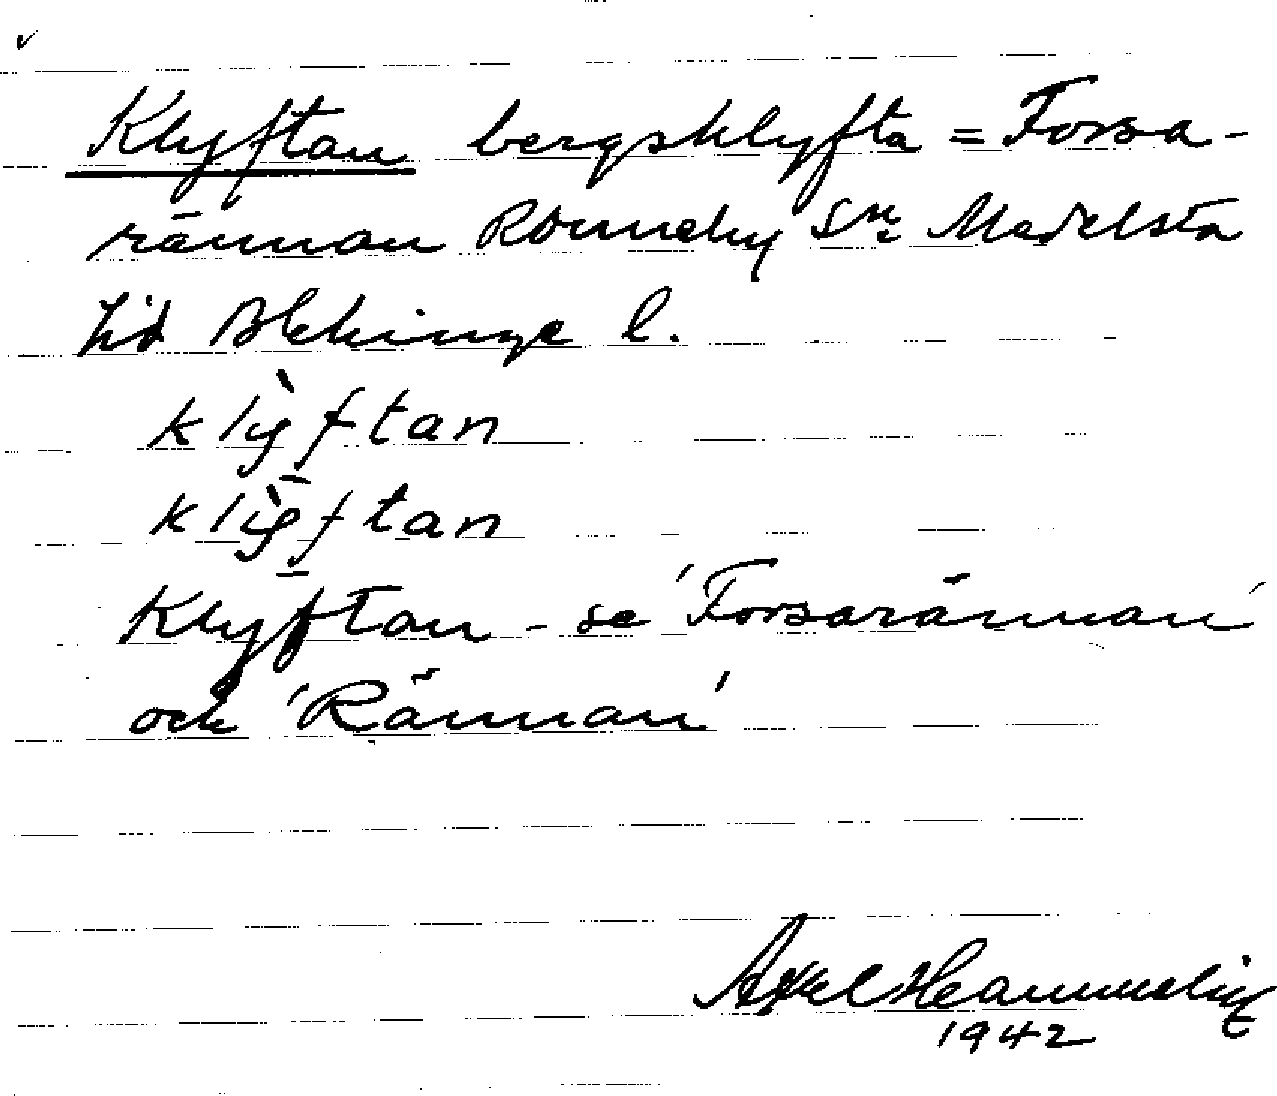 Klyftan bergsklyfta = Forsa-
rännan Ronneby Sn. Medelsta
hd Blekinge l.
klỳftan
klỳftan
Klyftan - se 'Forsarännan'
och 'Rännan'
Axel
1942